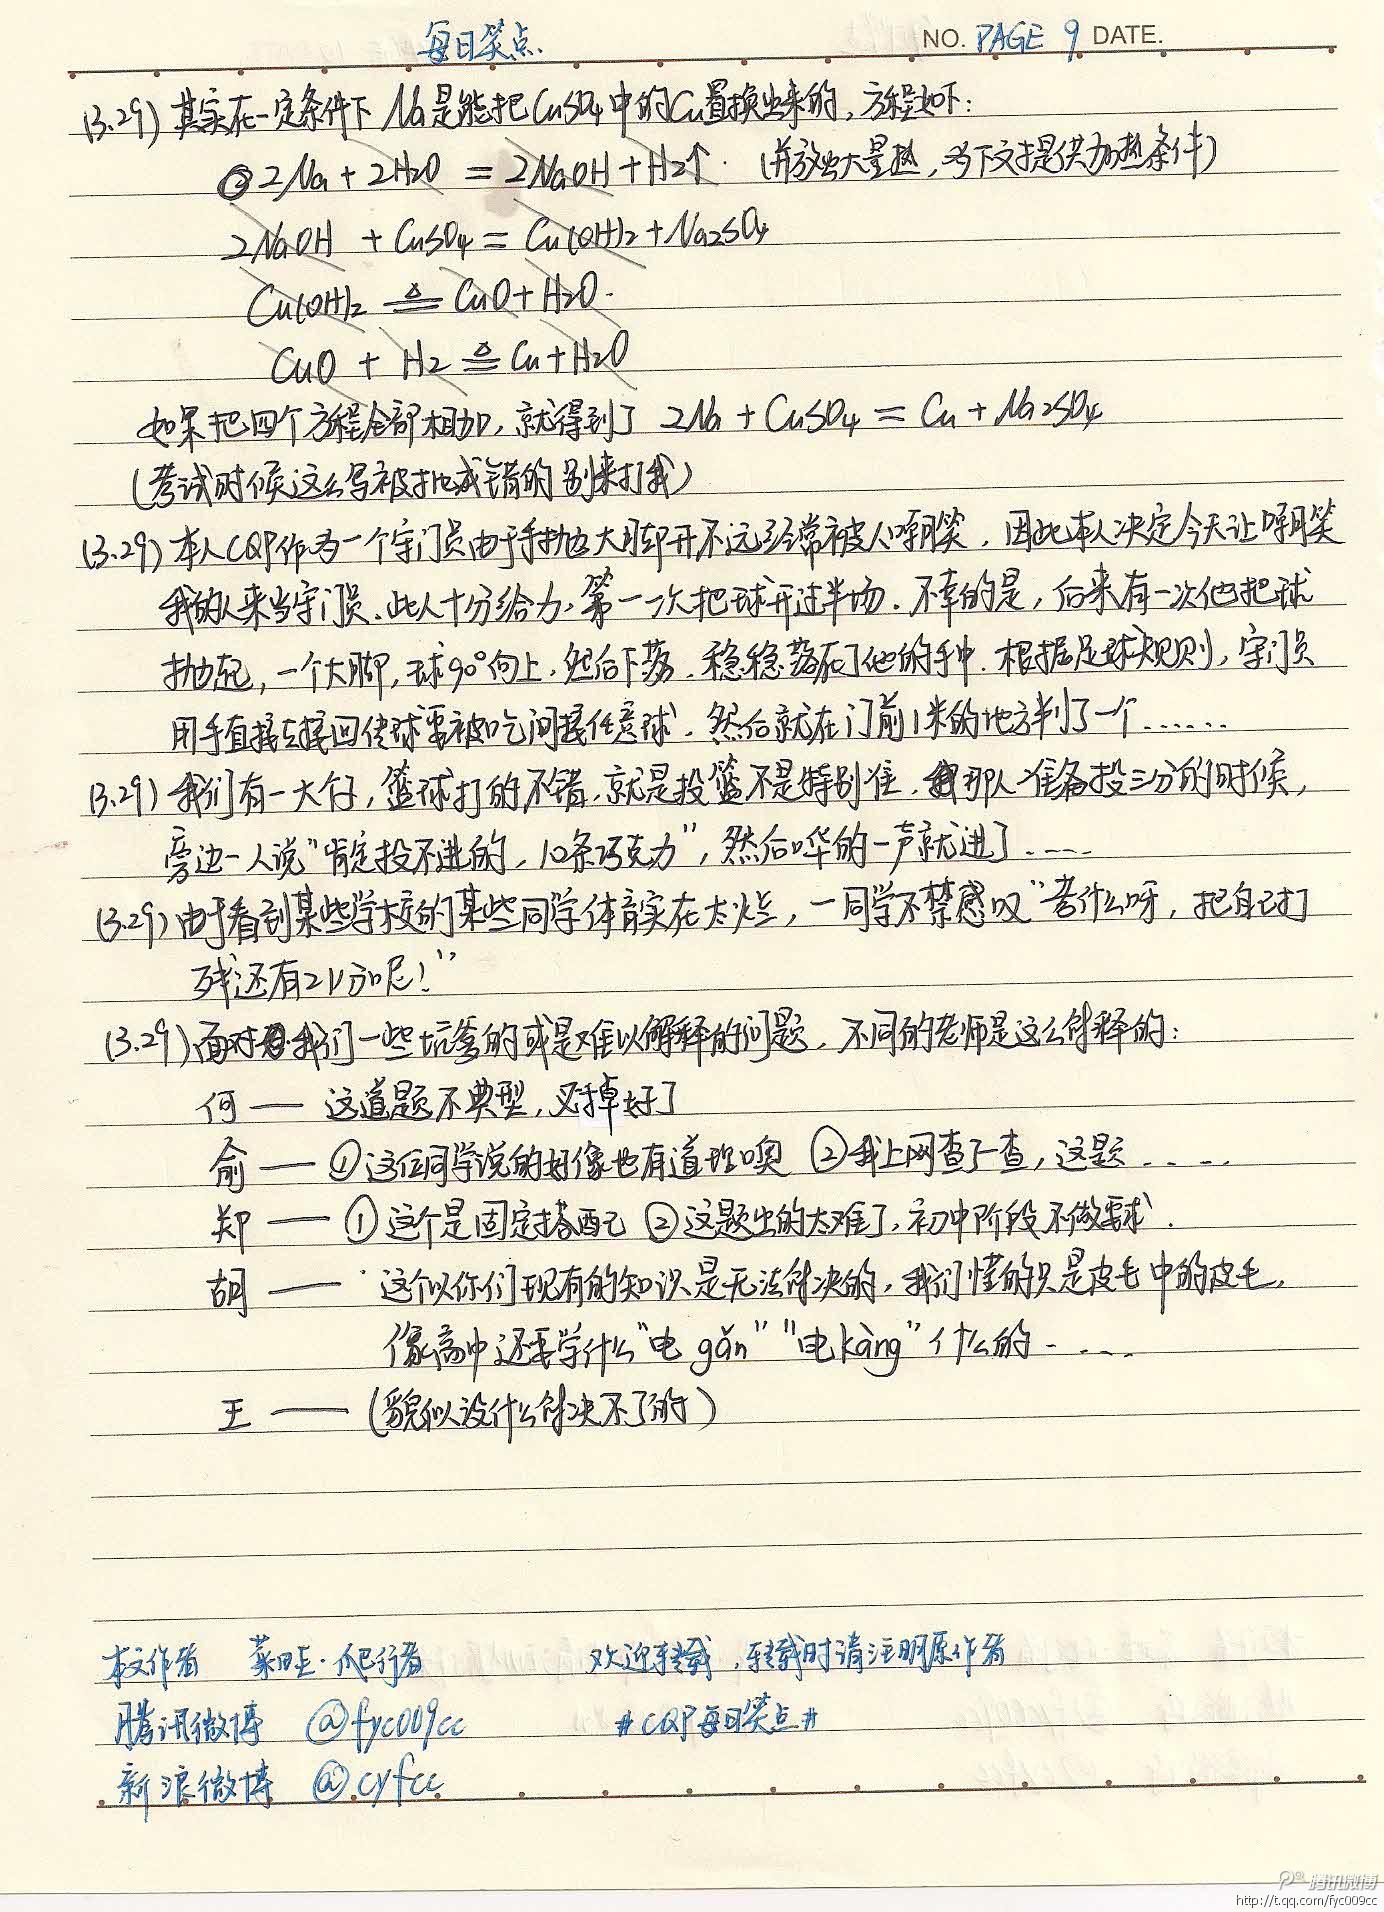 每日笑点
NO. PAGE 9 DATE.
(3.29) 其实在一定条件下 Na是能把CuSO4中的Cu置换出来的，方程如下：
2Na + 2H2O = 2NaOH + H2↑. (并放出大量热，为下文提供加热条件)
2NaOH + CuSO4 = Cu(OH)2 + Na2SO4
Cu(OH)2 ≜ CuO + H2O.
CuO + H2 ≜ Cu + H2O
如果把四个方程全部相加，就得到了 2Na + CuSO4 = Cu + Na2SO4
(考试时候这么写被批成错的别来打我)
(3.29) 本人CQP作为一个守门员由于手抛比大脚开不远经常被人嘲笑，因此本人决定今天让嘲笑
我的人来当守门员。此人十分给力，第一次把球开过半场。不幸的是，后来有一次他把球
抛起，一个大脚，球90°向上，然后下落，稳稳落在了他的手中。根据足球规则，守门员
用手直接接回传球要被吃间接任意球，然后就在门前1米的地方判了一个……
(3.29) 我们有一大仔，篮球打的不错，就是投篮不是特别准，那人准备投三分的时候，
旁边一人说“肯定投不进的，10条巧克力”，然后哗的一声就进了……
(3.29) 由于看到某些学校的某些同学体育实在太烂，一同学不禁感叹“考什么呀，把自己打
残还有21分呢！”
(3.29) 面对我们一些坑爹的或是难以解释的问题，不同的老师是这么解释的：
何 — 这道题不典型，叉掉好了
俞 — ①这位同学说的好像也有道理噢 ②我上网查了查，这题……
郑 — ①这个是固定搭配 ②这题出的太难了，初中阶段不做要求．
胡 — 这个以你们现有的知识是无法解决的，我们懂的只是皮毛中的皮毛，
像高中还要学什么“电gǎn”“电kàng”什么的……
王 — (貌似没什么解决不了的)
本文作者 菜田·爬行者 欢迎转载，转载时请注明原作者
腾讯微博 @fyc009cc #CQP每日笑点#
新浪微博 @cyfcc
腾讯微博
http://t.qq.com/fyc009cc